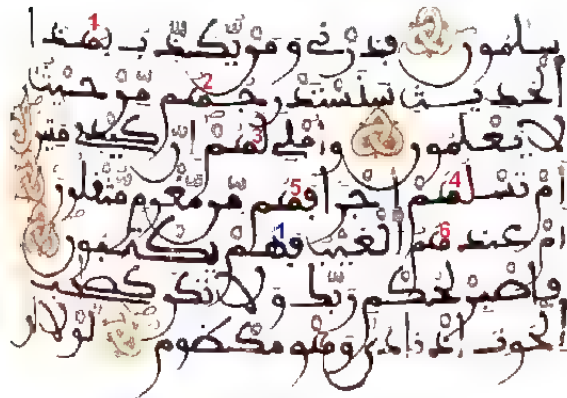 سلمون فذرني ومن يكذب بهذا 1
الحديث سنستدرجهم 2 من حيث
لا يعلمون وأملي لهم 3 إن كيدي متين
أم تسلهم 4 أجرا فهم 5 من مغرم مثقلون
أم عندهم 6 الغيب فهم 1 يكتبون
فاصبر لحكم ربك ولا تكن كصحب
الحوت إذ نادى وهو مكظوم لولا أن